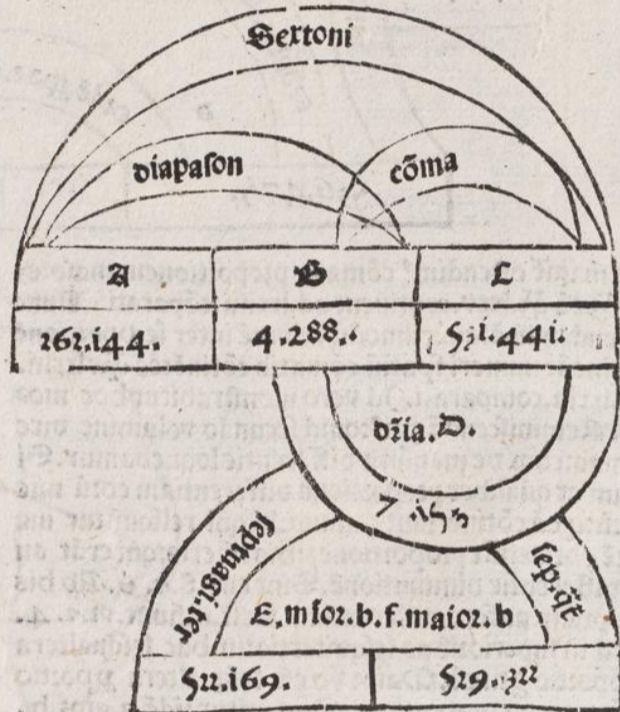 Sextoni
diapaſon cõma
A B C
262.i44. 4.288.. 531.44i.
dr̃ia.D.
7.i53
ſeptuagi.ter
E.mĩor.b.f.maior.b
522.i69. 529.322